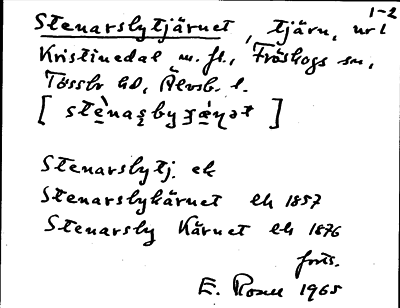 1-2
Stenarsbytjärnet, tjärn, nr 1
Kristinedal m. fl., Fröskogs sn,
Tössbo hd, Älvsb. l.
Stenarsbytj. ek
Stenarsbykärnet ek 1857
Stenarsby Kärnet ek 1876
forts.
E. Rosell 1965